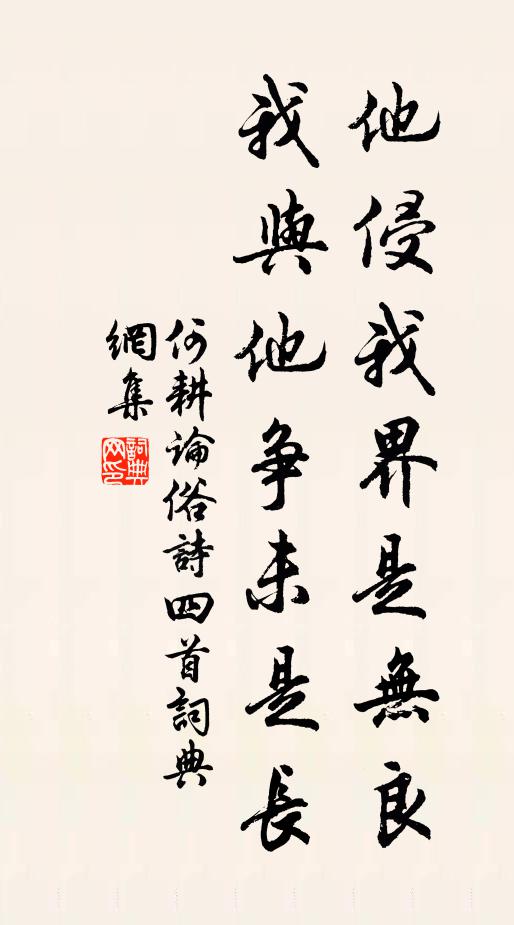 他侵我界是無良
我與他爭未是長
何耕論俗詩四首詞典
網集
詞典網印